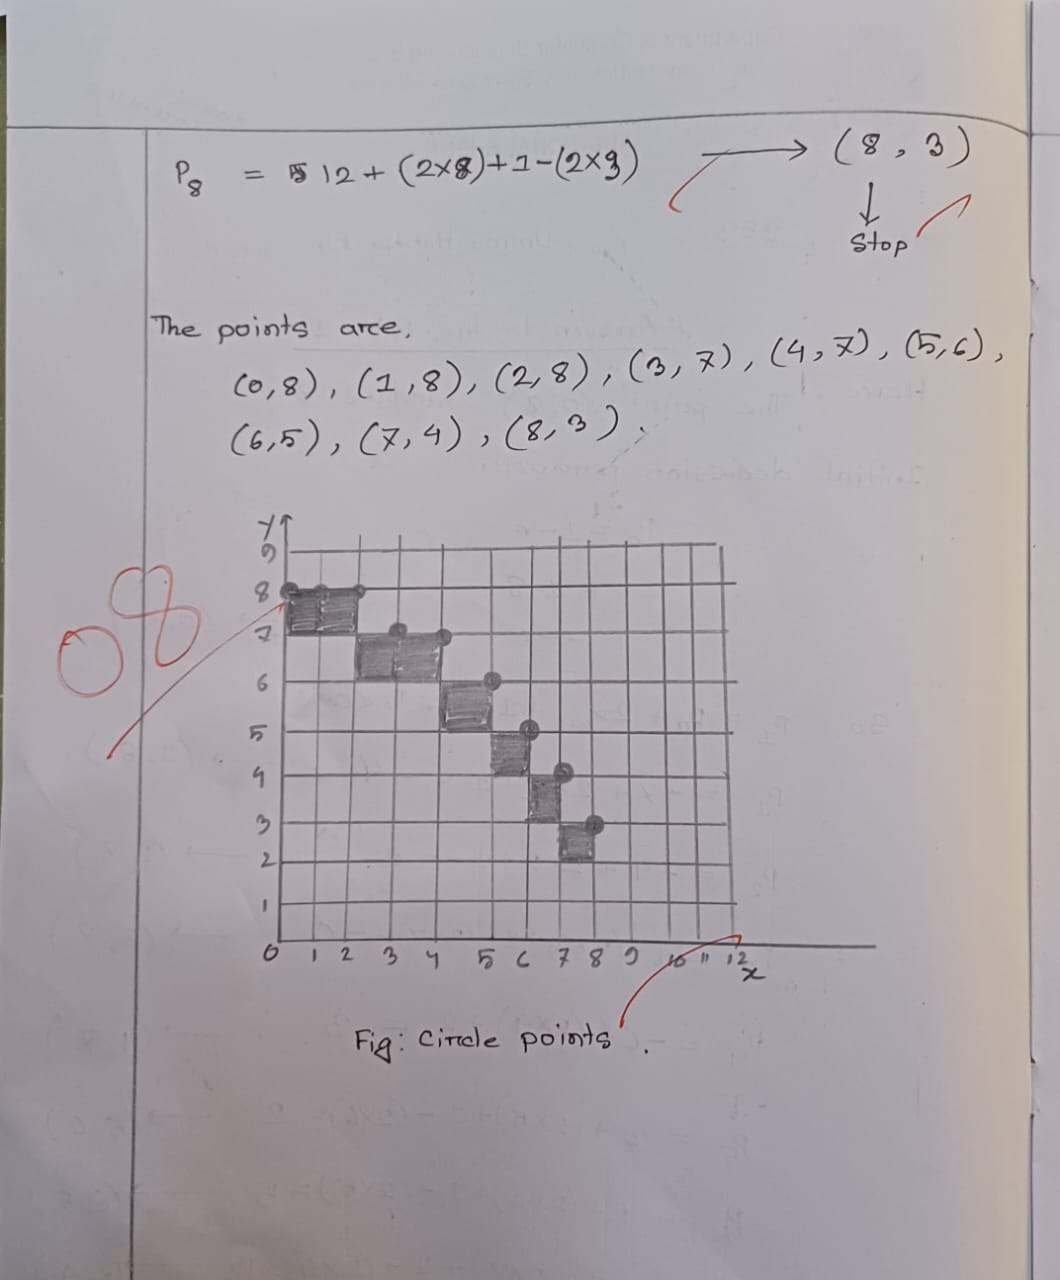 P8 = 12 + (2×8)+1-(2×3) → (8, 3)
↓
Stop
The points are,
(0,8), (1,8), (2,8), (3,7), (4,7), (5,6),
(6,5), (7,4), (8,3).
08
Y
9
8
7
6
5
4
3
2
1
0 1 2 3 4 5 6 7 8 9 10 11 12
x
Fig: Circle points.